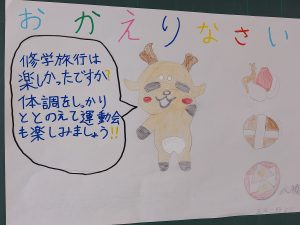 おかえりなさい
修学旅行は
楽しかったですか?
体調をしっかり
ととのえて運動会
も楽しみましょう!!